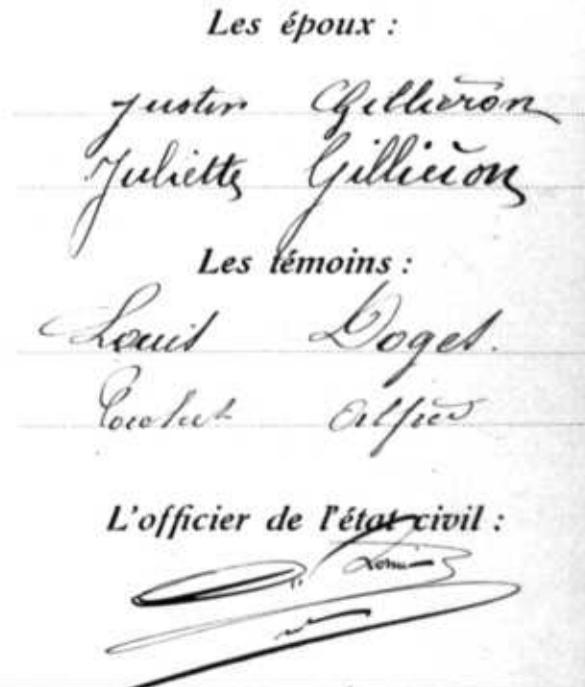 Les époux :
Justin Gilliéron
Juliette Gilliéron
Les témoins :
Louis Doget.
Alfred
L'officier de l'état civil :